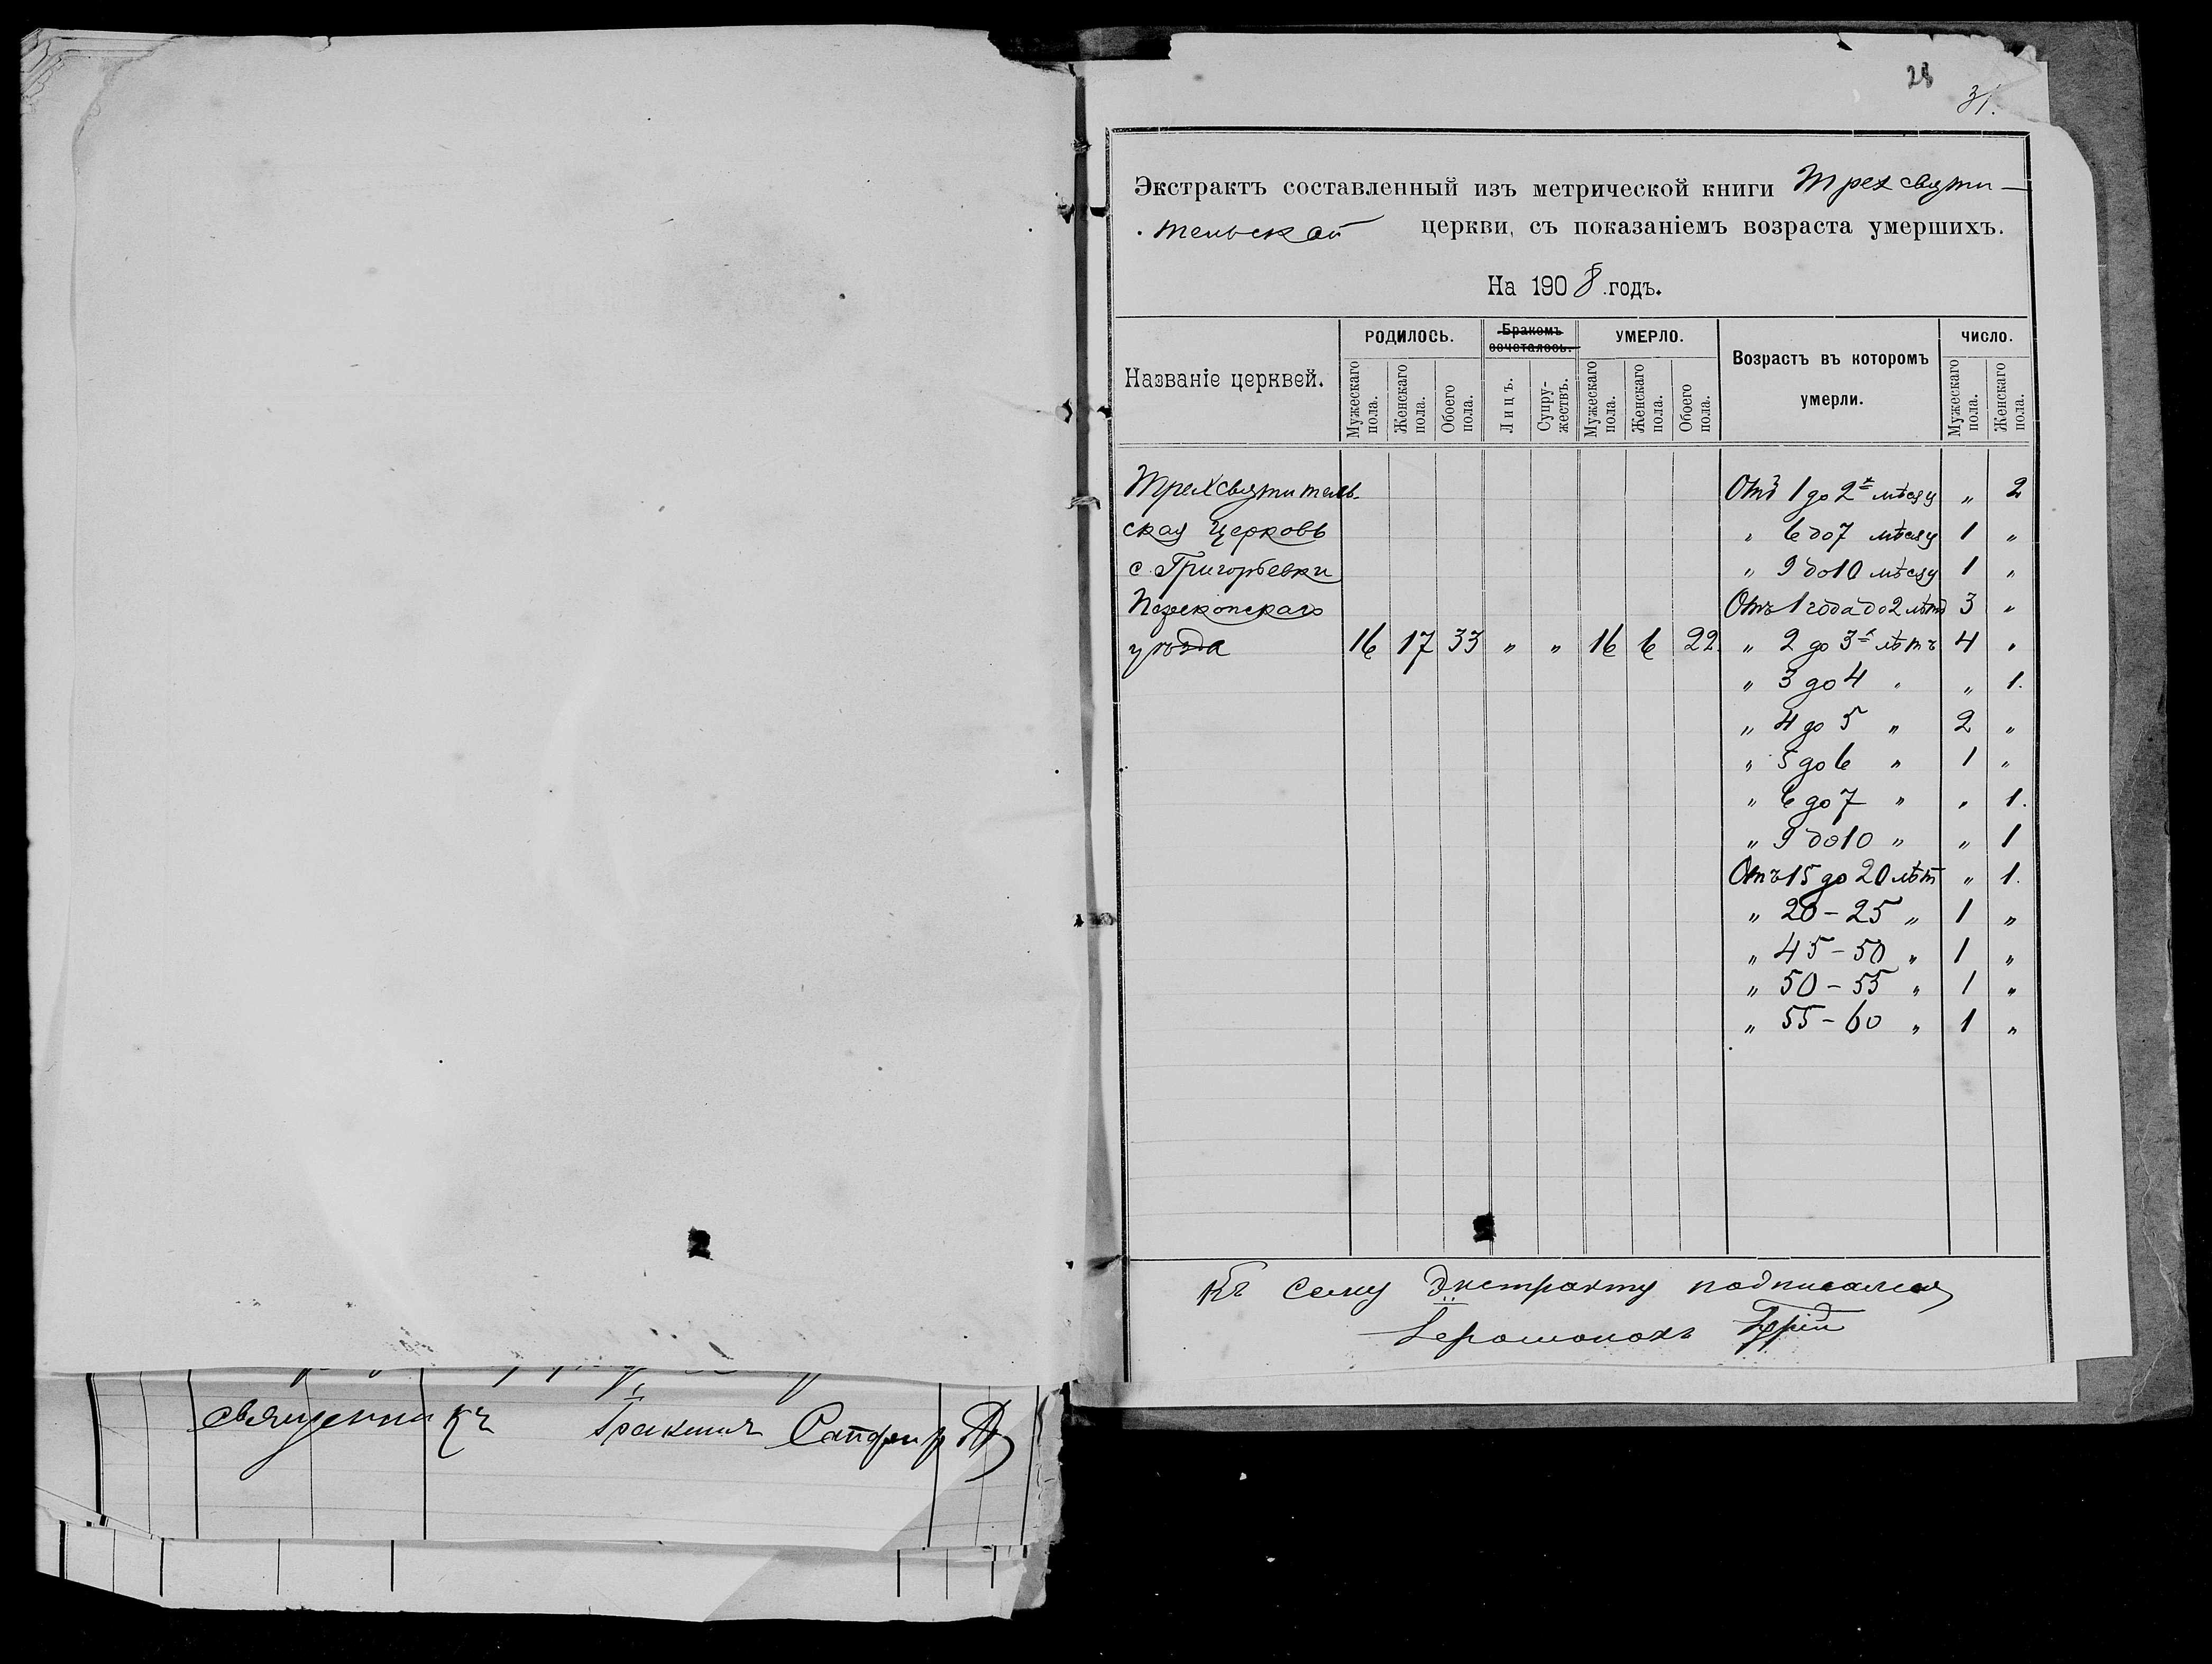 28
31.
Экстрактъ составленный изъ метрической книги Трехсвяти-
тельской церкви, съ показаніемъ возраста умершихъ.
На 1908 годъ.
Названіе церквей. РОДИЛОСЬ. Бракомъ сочеталось. УМЕРЛО. Возрастъ въ которомъ умерли. ЧИСЛО.
Мужескаго пола. Женскаго пола. Обоего пола. Лицъ. Супружествъ. Мужескаго пола. Женскаго пола. Обоего пола. Мужескаго пола. Женскаго пола.
Трехсвятитель- Отъ 1 до 2х мѣсяц „ 2
ская Церковь „ 6 до 7 мѣсяц 1 „
с. Григорьевки „ 9 до 10 мѣсяц 1 „
Перекопскаго Отъ 1 года до 2 лѣтъ 3 „
уѣзда 16 17 33 „ „ 16 6 22 „ 2 до 3х лѣтъ 4 „
„ 3 до 4 „ „ 1.
„ 4 до 5 „ 2 „
„ 5 до 6 „ 1 „
„ 6 до 7 „ „ 1.
„ 9 до 10 „ „ 1
Отъ 15 до 20 лѣт „ 1.
„ 20 - 25 „ 1 „
„ 45 - 50 „ 1 „
„ 50 - 55 „ 1 „
„ 55 - 60 „ 1 „
Къ сему Экстракту подписался
Іеромонахъ
священникъ